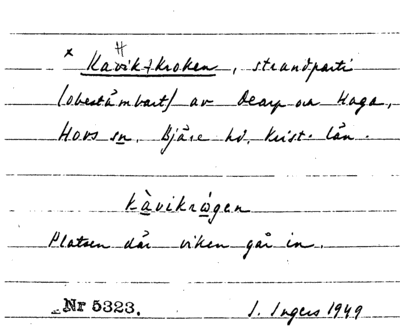 H
× Kavik/kroken, strandparti
(obestämbart) av Dearp och Haga,
Hovs sn. Bjäre hd. Krist. län.
kàvikrågen
Platsen där viken går in.
Nr 5323. I. Ingers 1949